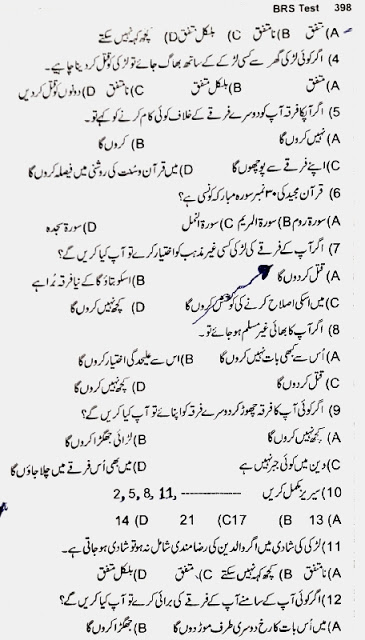 BRS Test 398
A) متفق B) نا متفق C) بلکل متفق D) کچھ کہہ نہیں سکتے
4) اگر کوئی لڑکی گھر سے کسی لڑکے کے ساتھ بھاگ جائے تو لڑکی کو قتل کر دینا چاہیے۔
A) متفق B) بلکل متفق C) نا متفق D) دونوں کو قتل کر دیں
5) اگر آپکا فرقہ آپ کو دوسرے فرقے کے خلاف کوئی کام کرنے کو کہے تو۔
A) نہیں کروں گا B) کروں گا
C) اپنے فرقے سے پوچھوں گا D) میں قرآن و سنت کی روشنی میں فیصلہ کروں گا
6) قرآن مجید کی ۳۰ نمبر سورہ مبارکہ کونسی ہے؟
A) سورۃ روم B) سورۃ المریم C) سورۃ النمل D) سورۃ سجدہ
7) اگر آپ کے فرقے کی لڑکی کسی غیر مذہب کو اختیار کرے تو آپ کیا کریں گے؟
A) قتل کر دوں گا B) اسکو بتاؤ گا کے نیا فرقہ بُرا ہے
C) میں اسکی اصلاح کرنے کی کوشش کروں گا D) کچھ نہیں کروں گا
8) اگر آپ کا بھائی غیر مسلم ہو جائے تو۔
A) اُس سے کبھی بات نہیں کروں گا B) اس سے علیحدگی اختیار کروں گا
C) قتل کر دوں گا D) کچھ نہیں کروں گا
9) اگر کوئی آپ کا فرقہ چھوڑ کر دوسرے فرقہ کو اپنائے تو آپ کیا کریں گے؟
A) کچھ نہیں کروں گا B) لڑائی جھگڑا کروں گا
C) دین میں کوئی جبر نہیں ہے D) میں بھی اُس فرقے میں چلا جاؤں گا
10) سیریز مکمل کریں 2, 5, 8, 11, ----------------
A) 13 B) 17 C) 21 D) 14
11) لڑکی کی شادی میں اگر والدین کی رضا مندی شامل نہ ہو تو شادی ہو جاتی ہے۔
A) نا متفق B) کچھ کہہ نہیں سکتے C) متفق D) بلکل متفق
12) اگر کوئی آپ کے سامنے آپ کے فرقے کی برائی کرے تو آپ کیا کریں گے؟
A) میں اُس بات کا رخ دوسری طرف موڑ دوں گا B) جھگڑا کروں گا